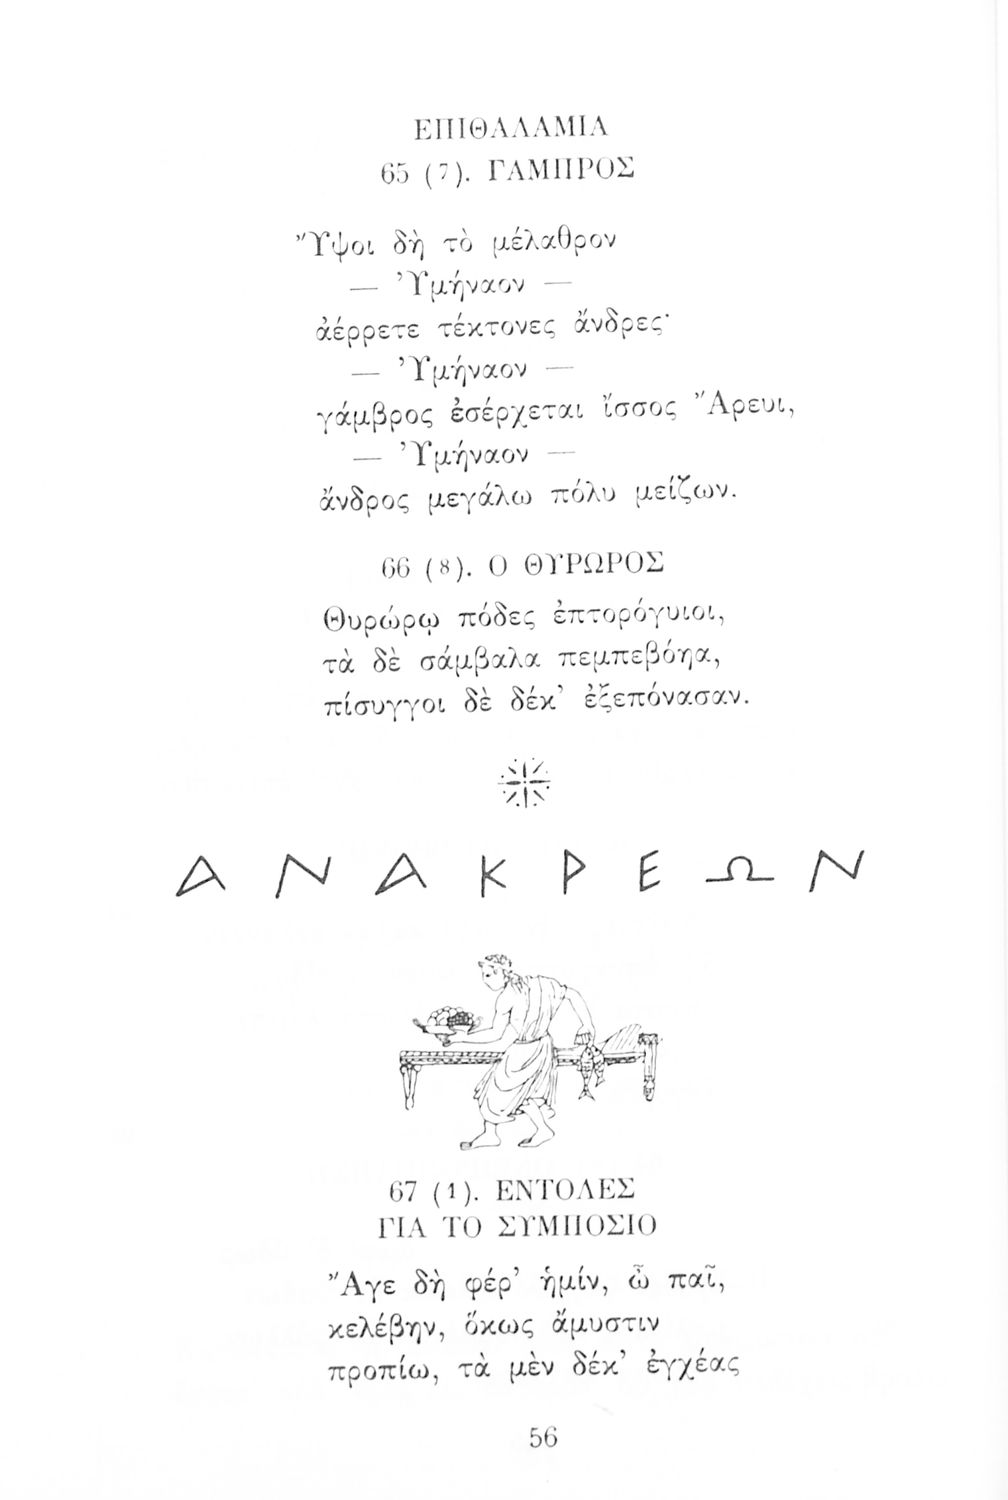 ΕΠΙΘΑΛΑΜΙΑ
65 (7). ΓΑΜΠΡΟΣ
Υ̓́ψοι δὴ τὸ μέλαθρον
— Υ̓μήναον —
ἀέρρετε τέκτονες ἄνδρες·
— Υ̓μήναον —
γάμβρος ἐσέρχεται ἴσσος Ἄρευι,
— Υ̓μήναον —
ἄνδρος μεγάλω πόλυ μείζων.
66 (8). Ο ΘΥΡΩΡΟΣ
Θυρώρῳ πόδες ἐπτορόγυιοι,
τὰ δὲ σάμβαλα πεμπεβόηα,
πίσυγγοι δὲ δέκ’ ἐξεπόνασαν.
ΑΝΑΚΡΕΩΝ
67 (1). ΕΝΤΟΛΕΣ
ΓΙΑ ΤΟ ΣΥΜΠΟΣΙΟ
Ἄγε δὴ φέρ’ ἡμίν, ὦ παῖ,
κελέβην, ὅκως ἄμυστιν
προπίω, τὰ μὲν δέκ’ ἐγχέας
56